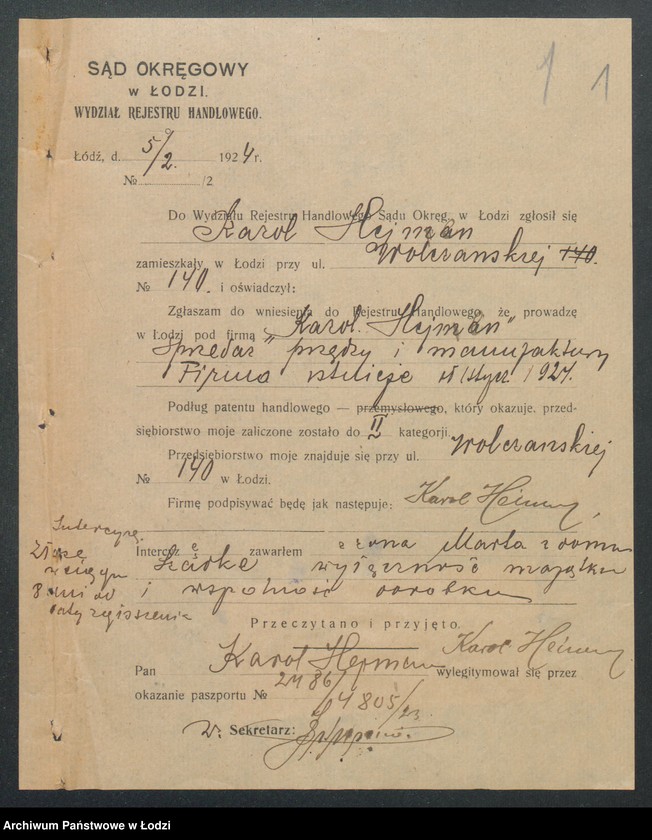 1 1
SĄD OKRĘGOWY
w ŁODZI.
WYDZIAŁ REJESTRU HANDLOWEGO.
Łódź, d. 5/2. 1924 r.
№ /2
Do Wydziału Rejestru Handlowego Sądu Okręg. w Łodzi zgłosił się
Karol Hejman
zamieszkały w Łodzi przy ul. Wolczanskiej 140.
№ 140. i oświadczył:
Zgłaszam do wniesienia do Rejestru Handlowego, że prowadzę
w Łodzi pod firmą „Karol Hejman"
sprzedaż przędzy i manufaktury
Firma istnieje stycz. 1924.
Podług patentu handlowego — przemysłowego, który okazuje, przed-
siębiorstwo moje zaliczone zostało do II kategorji.
Przedsiębiorstwo moje znajduje się przy ul. Wolczanskiej
№ 140 w Łodzi.
Firmę podpisywać będę jak następuje: Karol Heiman
Intercyzę
złożę
w ciągu
8 dni od
daty zgłoszenia
Intercyzę zawarłem z żoną Marta z domu
wyłączność majątku
i wspólność dorobku
Przeczytano i przyjęto.
Karol Heiman
Pan Karol Hejman wylegitymował się przez
okazanie paszportu №
4805/23.
w. Sekretarz:
Archiwum Państwowe w Łodzi